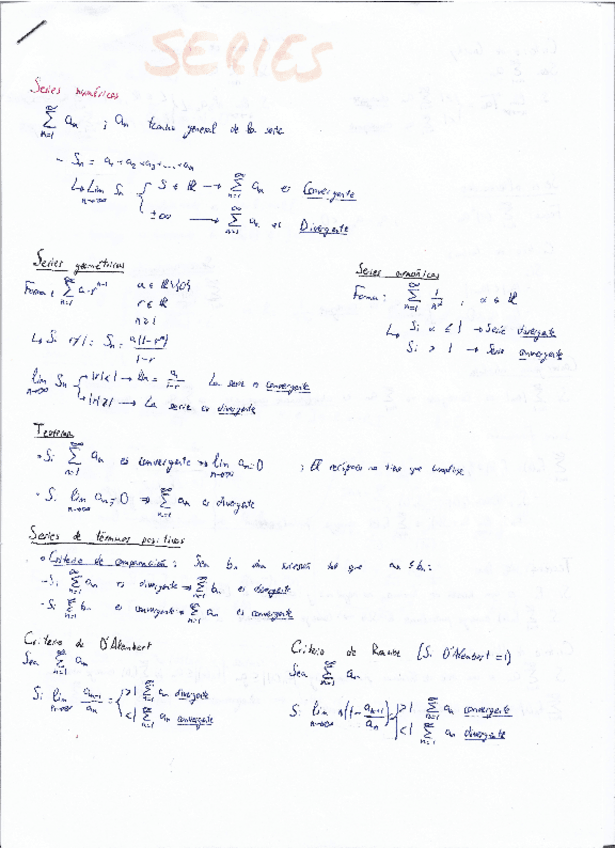 SERIES
Series numéricas
∑_{n=1}^{∞} a_n ; a_n termino general de la serie
- S_n = a_1 + a_2 + a_3 + ... + a_n
↳ Lim_{n→∞} S_n { S ∈ ℝ → ∑_{n=1}^{∞} a_n es Convergente
±∞ → ∑_{n=1}^{∞} a_n es Divergente
Series geométricas
Forma: ∑_{n=1}^{∞} a·r^{n-1} a ∈ ℝ\{0}
r ∈ ℝ
n ≥ 1
↳ Si r≠1: S_n = a(1-r^n)/(1-r)
lim_{n→∞} S_n { |r|<1 → S_n = a/(1-r) La serie es convergente
|r|≥1 → La serie es divergente
Series armónicas
Forma: ∑_{n=1}^{∞} 1/n^α ; α ∈ ℝ
↳ Si α ≤ 1 → Serie divergente
Si > 1 → Serie convergente
Teorema
- Si ∑_{n=1}^{∞} a_n es convergente ⇒ lim_{n→∞} a_n = 0 ; El recíproco no tiene que cumplirse
- Si lim_{n→∞} a_n ≠ 0 ⇒ ∑_{n=1}^{∞} a_n es divergente
Series de términos positivos
• Criterio de comparación: Sea b_n una sucesión tal que a_n ≤ b_n:
- Si ∑_{n=1}^{∞} a_n es divergente ⇒ ∑_{n=1}^{∞} b_n es divergente
- Si ∑_{n=1}^{∞} b_n es convergente ⇒ ∑_{n=1}^{∞} a_n es convergente
Criterio de D'Alembert
Sea ∑_{n=1}^{∞} a_n
Si lim_{n→∞} a_{n+1}/a_n = { >1 ∑_{n=1}^{∞} a_n divergente
<1 ∑_{n=1}^{∞} a_n convergente
Criterio de Raabe (Si D'Alembert = 1)
Sea ∑_{n=1}^{∞} a_n
Si lim_{n→∞} n(1 - a_{n+1}/a_n) = { >1 ∑_{n=1}^{∞} a_n convergente
<1 ∑_{n=1}^{∞} a_n divergente